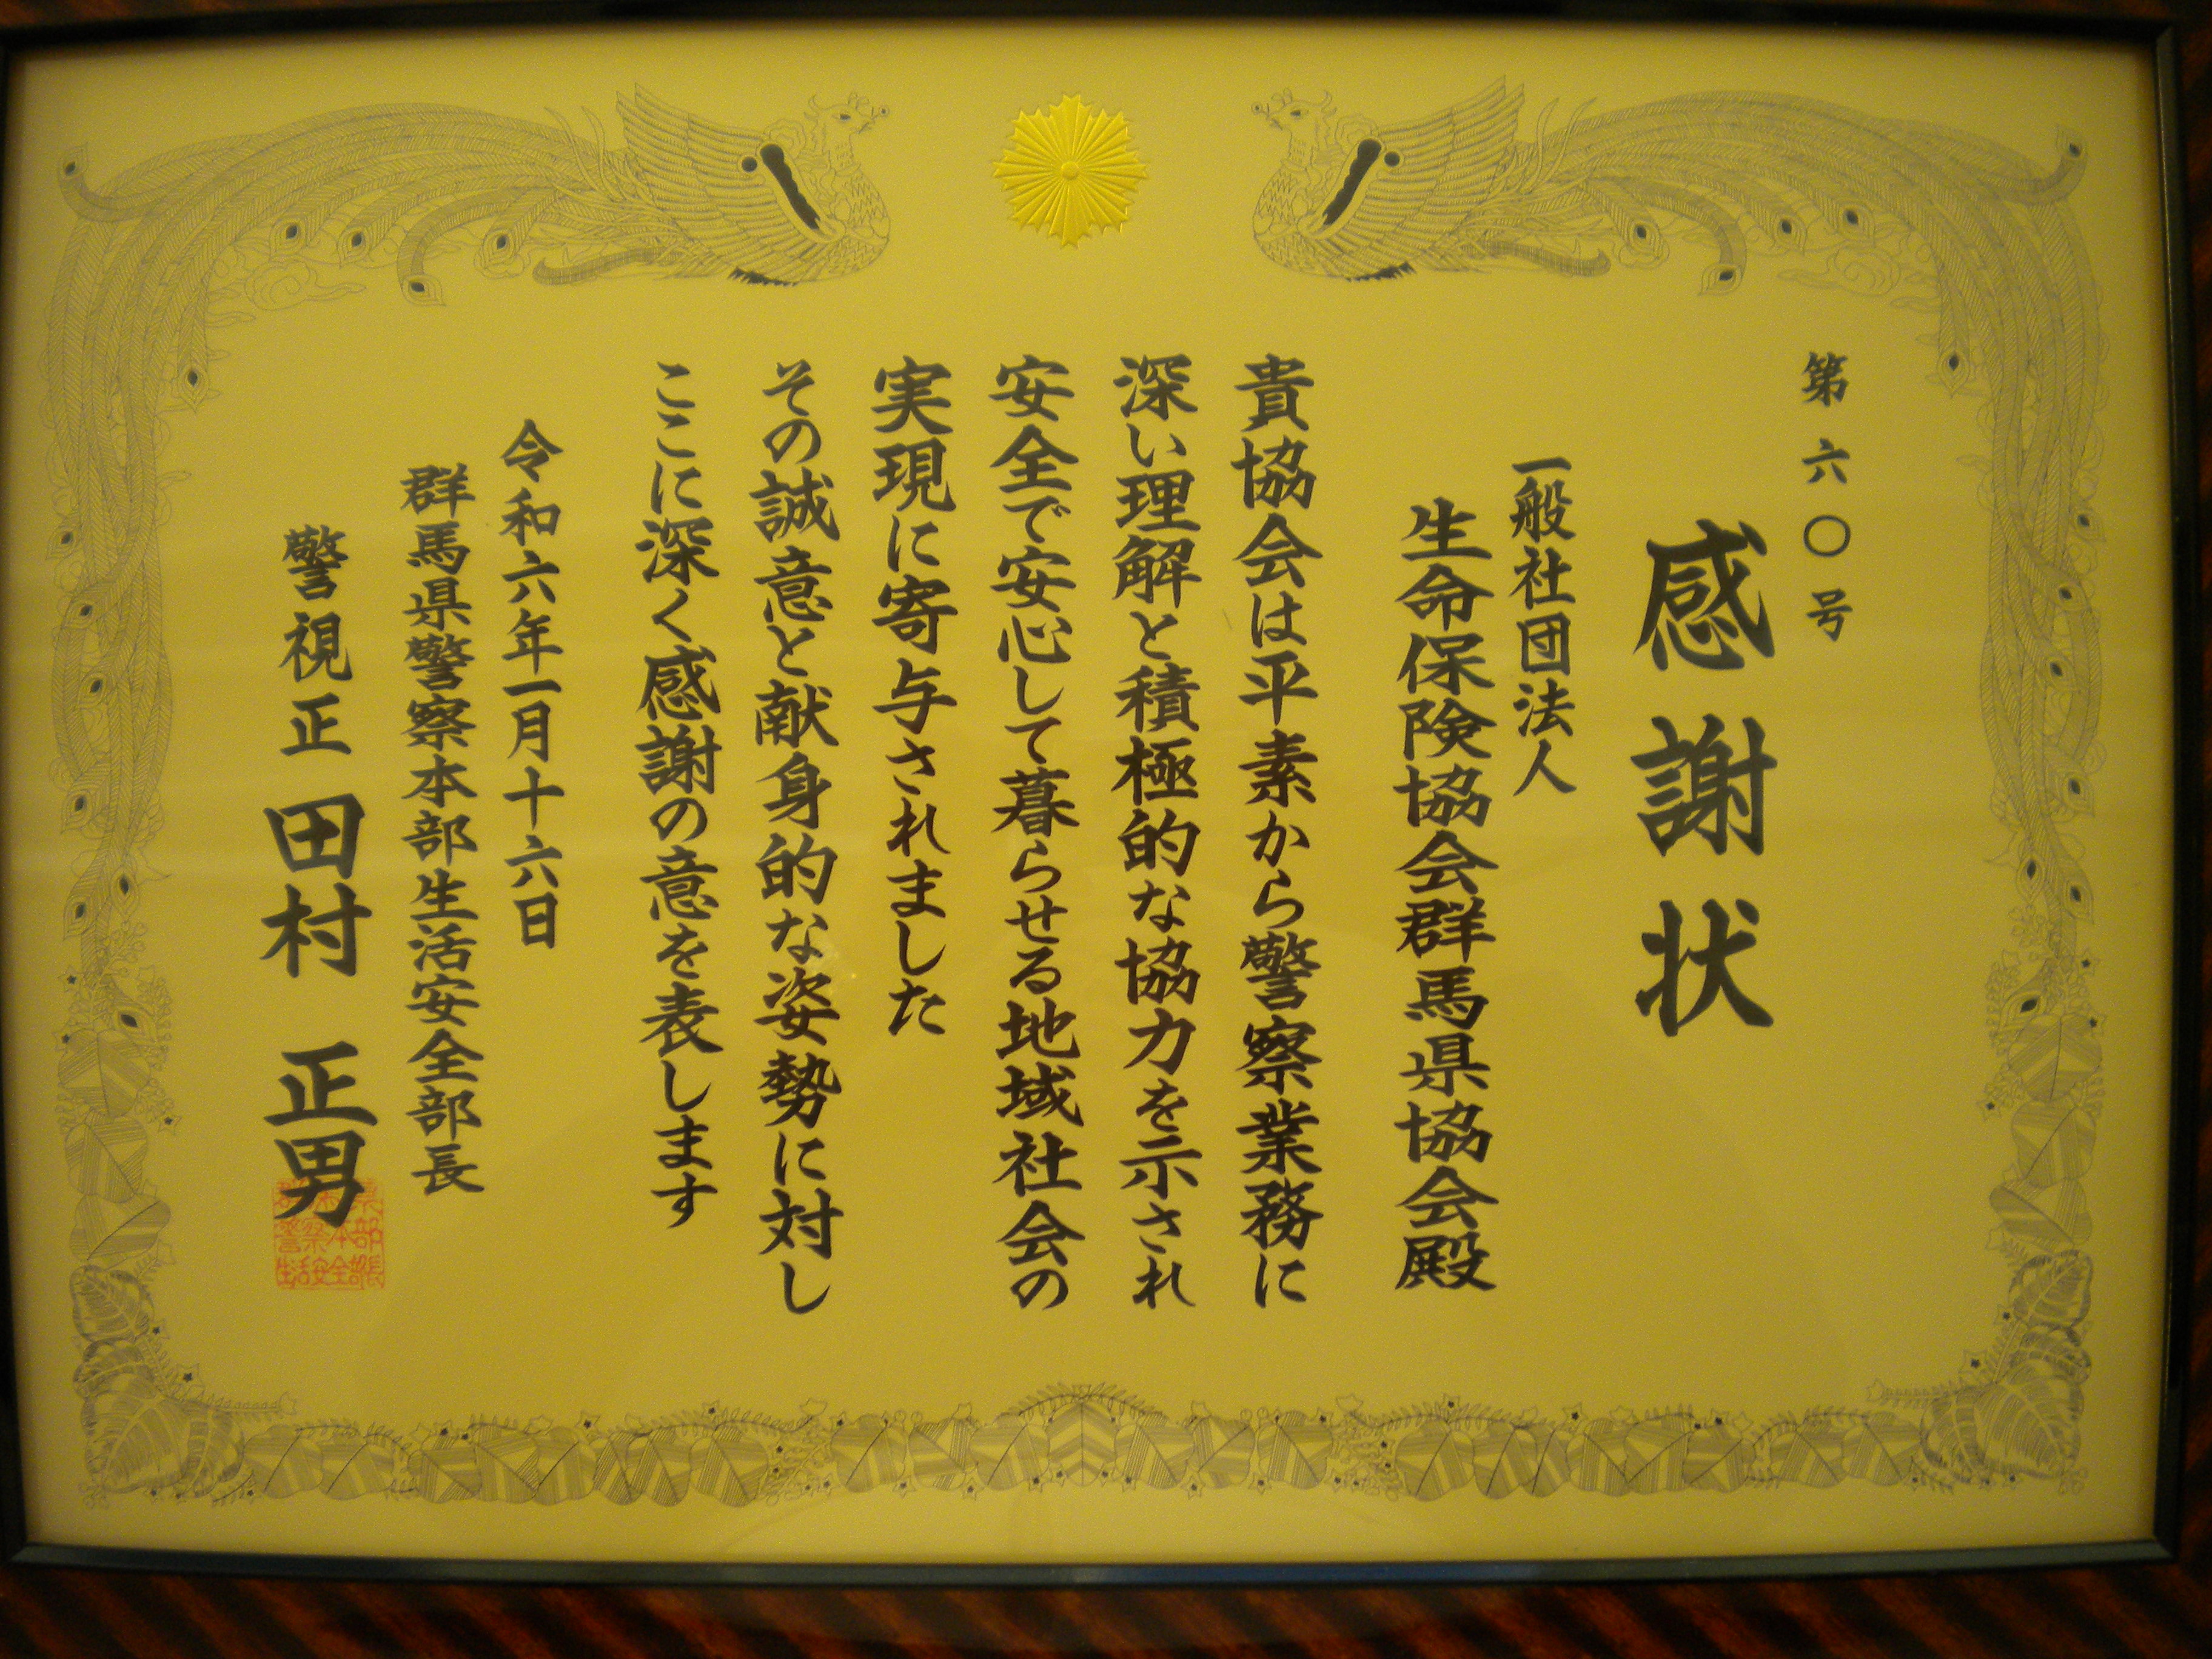 第六〇号
感謝状
一般社団法人
生命保険協会群馬県協会殿
貴協会は平素から警察業務に
深い理解と積極的な協力を示され
安全で安心して暮らせる地域社会の
実現に寄与されました
その誠意と献身的な姿勢に対し
ここに深く感謝の意を表します
令和六年一月十六日
群馬県警察本部生活安全部長
警視正 田村 正男